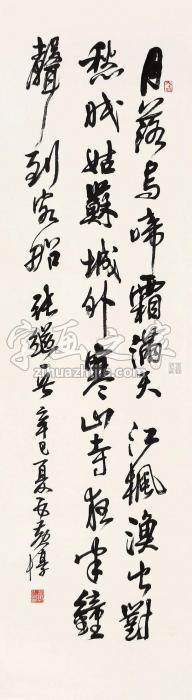 月落烏啼霜滿天江楓漁火對
愁眠姑蘇城外寒山寺夜半鐘
聲到客船 張繼 辛巳夏
字画之家